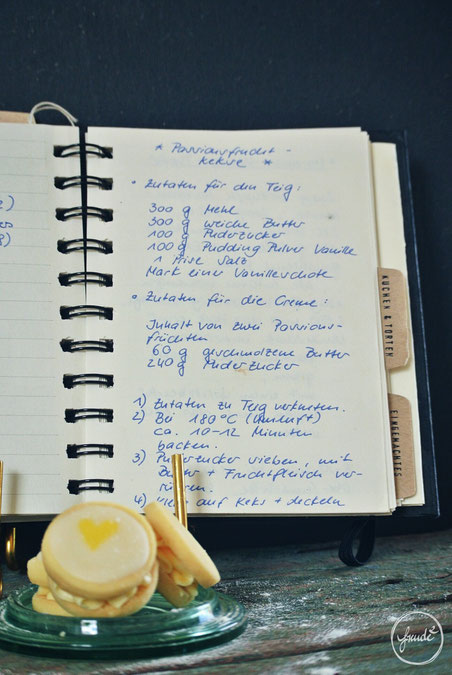 * Passionsfrucht -
kekse *
• Zutaten für den Teig:
300 g Mehl
300 g weiche Butter
100 g Puderzucker
100 g Pudding Pulver Vanille
1 Prise Salz
Mark einer Vanilleschote
• Zutaten für die Creme:
Inhalt von zwei Passions-
früchten
60 g geschmolzene Butter
240 g Puderzucker
1) Zutaten zu Teig verkneten.
2) Bei 180°C (Umluft)
ca. 10-12 Minuten
backen.
3) Puderzucker sieben, mit
Butter + Fruchtfleisch ver-
rühren.
4) auf Keks + deckeln
KUCHEN & TORTEN
EINGEMACHTES